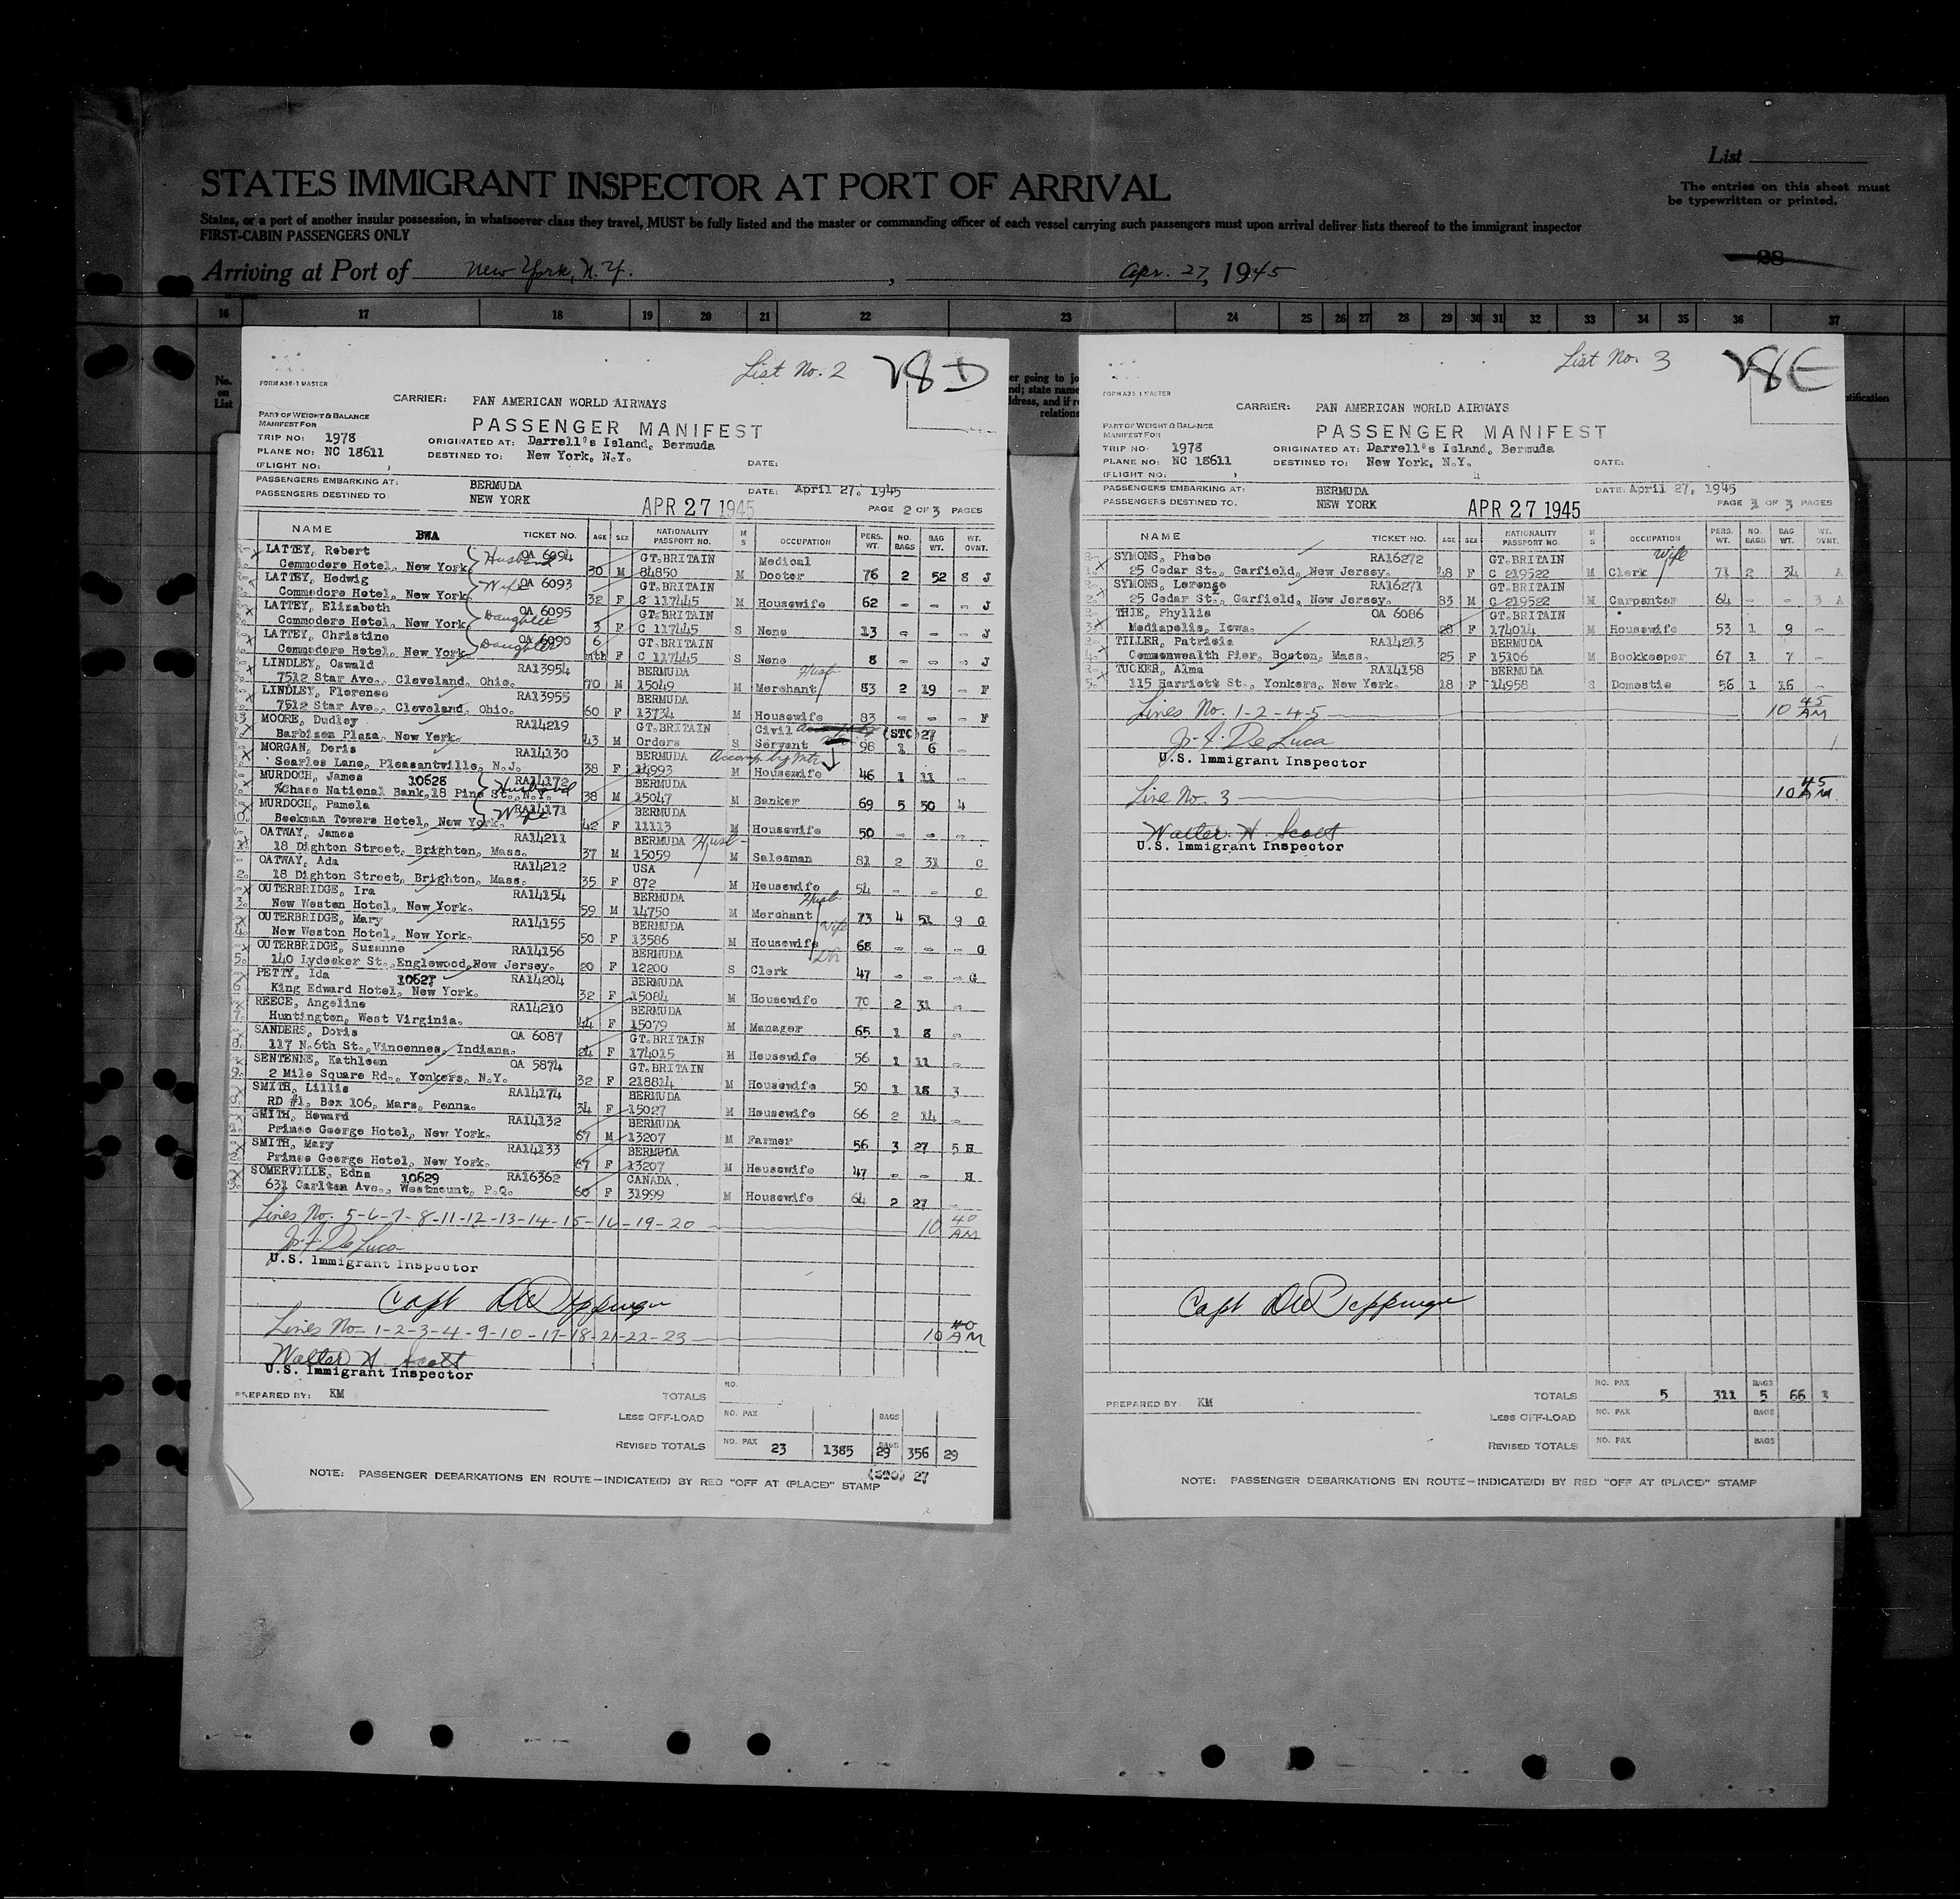 List
STATES IMMIGRANT INSPECTOR AT PORT OF ARRIVAL
The entries on this sheet must
be typewritten or printed.
States, or a port of another insular possession, in whatsoever class they travel, MUST be fully listed and the master or commanding officer of each vessel carrying such passengers must upon arrival deliver lists thereof to the immigrant inspector
FIRST-CABIN PASSENGERS ONLY
28
Arriving at Port of New York, N.Y. , Apr. 27, 1945
16 17 18 19 20 21 22 23 24 25 26 27 28 29 30 31 32 33 34 35 36 37
No.
on
List
List No. 2 28D
FORM A36-1 MASTER
CARRIER: PAN AMERICAN WORLD AIRWAYS
PART OF WEIGHT & BALANCE
MANIFEST FOR
PASSENGER MANIFEST
TRIP NO: 1978 ORIGINATED AT: Darrell's Island, Bermuda
PLANE NO: NC 18611 DESTINED TO: New York, N.Y.
(FLIGHT NO: DATE:
PASSENGERS EMBARKING AT: BERMUDA DATE: April 27, 1945
PASSENGERS DESTINED TO: NEW YORK APR 27 1945 PAGE 2 OF 3 PAGES
NAME BWA TICKET NO. AGE SEX NATIONALITY PASSPORT NO. M S OCCUPATION PERS. WT. NO. BAGS BAG WT. WT. OVNT.
LATTEY, Robert Husband OA 6094 GT.BRITAIN Medical
Commodore Hotel, New York 30 M 84850 M Doctor 76 2 52 8 J
LATTEY, Hedwig Wife OA 6093 GT.BRITAIN
Commodore Hotel, New York. 32 F C 117445 M Housewife 62 - - - J
LATTEY, Elizabeth OA 6095 Daughter GT.BRITAIN
Commodore Hotel, New York 3 F C 117445 S None 13 - - - J
LATTEY, Christine OA 6090 Daughter 6 GT.BRITAIN
Commodore Hotel, New York. mth F C 117445 S None 8 - - - J
LINDLEY, Oswald RA13954 BERMUDA Husb.
7512 Star Ave., Cleveland, Ohio. 70 M 15049 M Merchant 83 2 19 - F
LINDLEY, Florence RA13955 BERMUDA
7512 Star Ave., Cleveland, Ohio. 60 F 13734 M Housewife 83 - - - F
MOORE, Dudley RA14219 GT.BRITAIN Civil (STC) 27
Barbizon Plaza, New York. 43 M Orders S Servant 98 1 6 -
MORGAN, Doris RA14130 BERMUDA
Searles Lane, Pleasantville, N.J. 38 F 14993 M Housewife 46 1 11 -
MURDOCH, James 10628 RA14172 Husband BERMUDA
%Chase National Bank,18 Pine St., N.Y. 38 M 15047 M Banker 69 5 50 4
MURDOCH, Pamela RA14171 Wife BERMUDA
Beekman Towers Hotel, New York. 42 F 11113 M Housewife 50 - - -
OATWAY, James RA14211 BERMUDA Husb-
18 Dighton Street, Brighton, Mass. 37 M 15059 M Salesman 81 2 31 C
OATWAY, Ada RA14212 USA
18 Dighton Street, Brighton, Mass. 35 F 872 M Housewife 54 - - C
OUTERBRIDGE, Ira RA14154 BERMUDA Husb.
New Weston Hotel, New York. 59 M 14750 M Merchant 73 4 51 9 G
OUTERBRIDGE, Mary RA14155 BERMUDA Wife
New Weston Hotel, New York. 50 F 13586 M Housewife 68 - - - G
OUTERBRIDGE, Suzanne RA14156 BERMUDA
140 Lydecker St.,Englewood,New Jersey. 20 F 12200 S Clerk 47 - - - G
PETTY, Ida 10627 RA14204 BERMUDA
King Edward Hotel, New York. 32 F 15084 M Housewife 70 2 31 -
REECE, Angeline RA14210 BERMUDA
Huntington, West Virginia. 44 F 15079 M Manager 65 1 8 -
SANDERS, Doris OA 6087 GT.BRITAIN
117 N.6th St.,Vincennes, Indiana. 24 F 174015 M Housewife 56 1 11 -
SENTENNE, Kathleen OA 5874 GT.BRITAIN
2 Mile Square Rd., Yonkers, N.Y. 32 F 218814 M Housewife 50 1 18 3
SMITH, Lillis RA14174 BERMUDA
RD #1, Box 106, Mars, Penna. 34 F 15027 M Housewife 66 2 14
SMITH, Howard RA14132 BERMUDA
Prince George Hotel, New York. 67 M 13207 M Farmer 56 3 27 5 H
SMITH, Mary RA14133 BERMUDA
Prince George Hotel, New York. 67 F 13207 M Housewife 47 - - H
SOMERVILLE, Edna 10629 RA16362 CANADA.
631 Carlton Ave., Westmount, P.Q. 60 F 31999 M Housewife 64 2 27 -
Lines No. 5-6-7-8-11-12-13-14-15-16-19-20 10 40 AM
De Luca
U.S. Immigrant Inspector
Capt
Lines No- 1-2-3-4-9-10-17-18-21-22-23 10 40 AM
Walter H. Scott
U.S. Immigrant Inspector
PREPARED BY: KM
TOTALS NO.
LESS OFF-LOAD NO. PAX BAGS
REVISED TOTALS NO. PAX 23 1385 BAGS 29 356 29
(STC) 27
NOTE: PASSENGER DEBARKATIONS EN ROUTE—INDICATE(D) BY RED "OFF AT (PLACE)" STAMP
List No. 3 28E
FORM A36-1 MASTER
CARRIER: PAN AMERICAN WORLD AIRWAYS
PART OF WEIGHT & BALANCE
MANIFEST FOR
PASSENGER MANIFEST
TRIP NO: 1978 ORIGINATED AT: Darrell's Island, Bermuda
PLANE NO: NC 18611 DESTINED TO: New York, N.Y.
(FLIGHT NO. DATE:
PASSENGERS EMBARKING AT: BERMUDA DATE: April 27, 1945
PASSENGERS DESTINED TO: NEW YORK APR 27 1945 PAGE 3 OF 3 PAGES
NAME TICKET NO. AGE SEX NATIONALITY PASSPORT NO. M S OCCUPATION PERS. WT. NO. BAGS BAG WT. WT. OVNT.
SYMONS, Phebe RA16272 GT.BRITAIN Wife
25 Cedar St., Garfield, New Jersey. 48 F C 219522 M Clerk 71 2 34 A
SYMONS, Lorenzo RA16271 GT.BRITAIN
25 Cedar St., Garfield, New Jersey. 83 M C 219522 M Carpenter 64 - - 3 A
THIE, Phyllis OA 6086 GT.BRITAIN
Mediapolis, Iowa. 28 F 174014 M Housewife 53 1 9 -
TILLER, Patricia RA14213 BERMUDA
Commonwealth Pier, Boston, Mass. 25 F 15106 M Bookkeeper 67 1 7 -
TUCKER, Alma RA14158 BERMUDA
115 Harriett St., Yonkers, New York. 18 F 14958 S Domestic 56 1 16 -
Lines No. 1-2-4-5 10 45 AM
De Luca
U.S. Immigrant Inspector
Line No. 3 10 45 AM
Walter H. Scott
U.S. Immigrant Inspector
Capt
PREPARED BY KM
TOTALS NO. PAX 5 311 BAGS 5 66 3
LESS OFF-LOAD NO. PAX BAGS
REVISED TOTALS NO. PAX BAGS
NOTE: PASSENGER DEBARKATIONS EN ROUTE—INDICATE(D) BY RED "OFF AT (PLACE)" STAMP